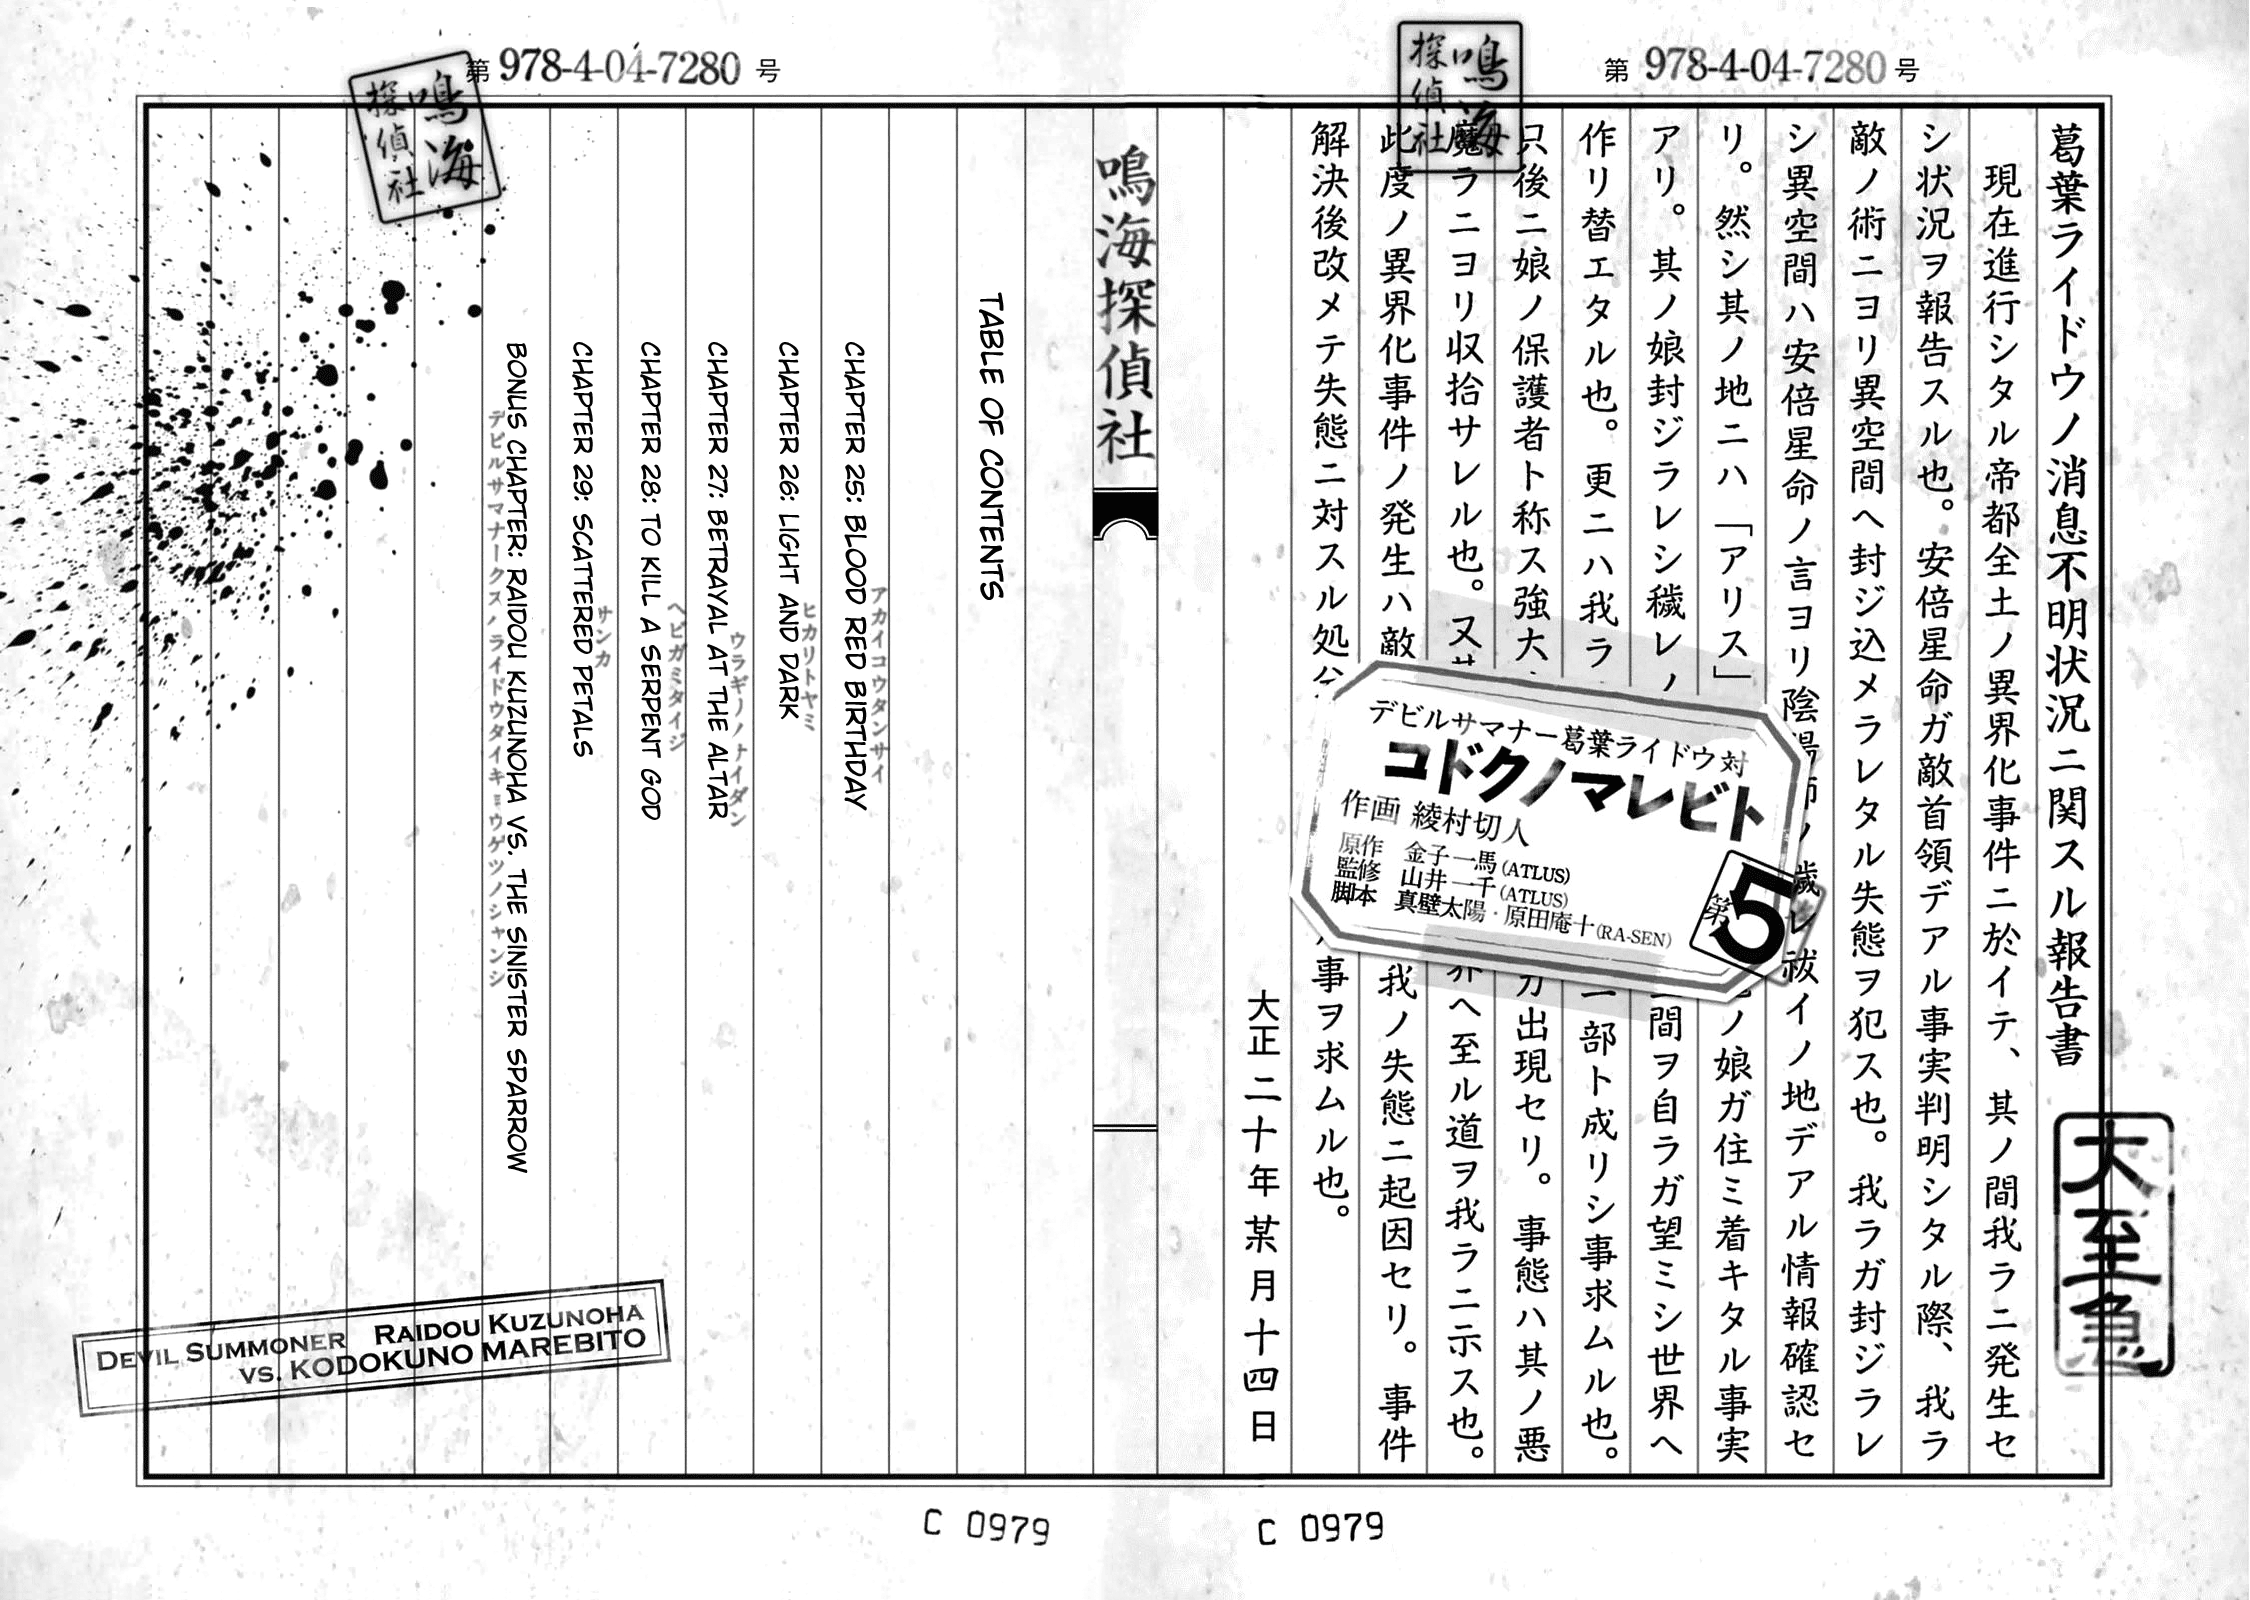 第 978-4-04-7280 号
鳴海
探偵社
葛葉ライドウノ消息不明状況ニ関スル報告書
大至急
現在進行シタル帝都全土ノ異界化事件ニ於イテ、其ノ間我ラニ発生セ
シ状況ヲ報告スル也。安倍星命ガ敵首領デアル事実判明シタル際、我ラ
敵ノ術ニヨリ異空間へ封ジ込メラレタル失態ヲ犯ス也。我ラガ封ジラレ
シ異空間ハ安倍星命ノ言ヨリ陰陽師ノ穢レ祓イノ地デアル情報確認セ
リ。然シ其ノ地ニハ「アリス」
ノ娘ガ住ミ着キタル事実
アリ。其ノ娘封ジラレシ穢レノ
間ヲ自ラガ望ミシ世界へ
作リ替エタル也。更ニハ我ラ
一部ト成リシ事求ムル也。
只後ニ娘ノ保護者ト称ス強大
ガ出現セリ。事態ハ其ノ悪
魔ラニヨリ収拾サレル也。又
界へ至ル道ヲ我ラニ示ス也。
此度ノ異界化事件ノ発生ハ敵
我ノ失態ニ起因セリ。事件
解決後改メテ失態ニ対スル処分
事ヲ求ムル也。
大正二十年某月十四日
デビルサマナー葛葉ライドウ対
コドクノマレビト
作画 綾村切人
原作 金子一馬(ATLUS)
監修 山井一千(ATLUS)
脚本 真壁太陽・原田庵十(RA-SEN)
第5
C 0979
第 978-4-04-7280 号
鳴海
探偵社
鳴海探偵社
TABLE OF CONTENTS
アカイコウタンサイ
CHAPTER 25: BLOOD RED BIRTHDAY
ヒカリトヤミ
CHAPTER 26: LIGHT AND DARK
ウラギリノナイダン
CHAPTER 27: BETRAYAL AT THE ALTAR
ヘビガミタイジ
CHAPTER 28: TO KILL A SERPENT GOD
サンカ
CHAPTER 29: SCATTERED PETALS
BONUS CHAPTER: RAIDOU KUZUNOHA VS. THE SINISTER SPARROW
デビルサマナークズノハライドウタイキョウゲツノシャンシ
DEVIL SUMMONER RAIDOU KUZUNOHA
VS. KODOKUNO MAREBITO
C 0979